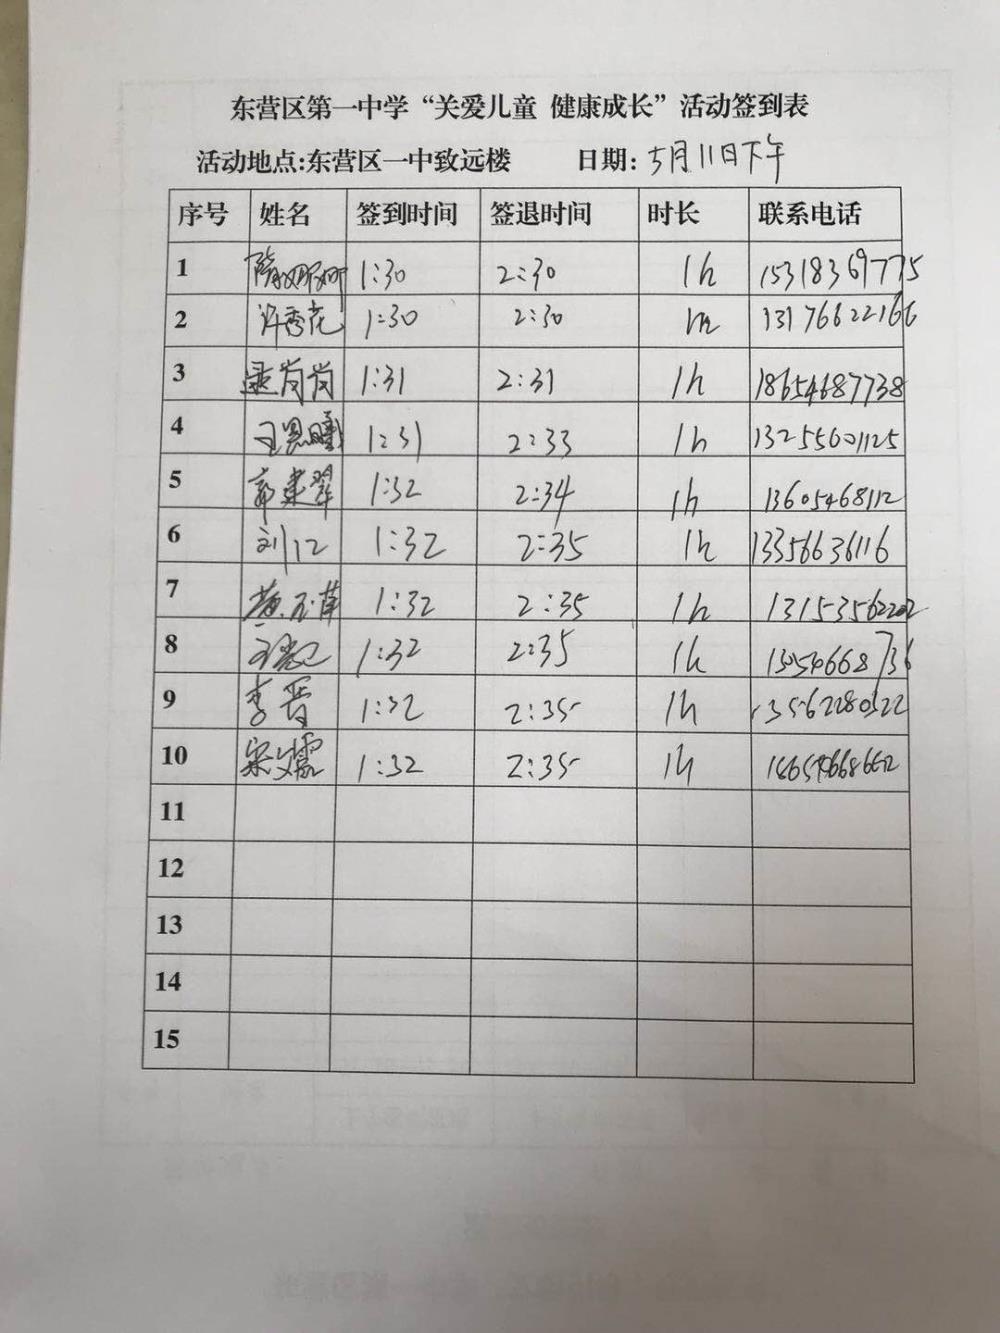 东营区第一中学“关爱儿童 健康成长”活动签到表
活动地点:东营区一中致远楼 日期: 5月11日下午
序号 姓名 签到时间 签退时间 时长 联系电话
1 隋娜娜 1:30 2:30 1h 15318369775
2 许秀花 1:30 2:30 1h 13176622166
3 1:31 2:31 1h 18654687738
4 1:31 2:33 1h 13255601125
5 郭建翠 1:32 2:34 1h 13605468112
6 刘江 1:32 2:35 1h 13356636116
7 1:32 2:35 1h 13153562202
8 1:32 2:35 1h
9 李晋 1:32 2:35 1h 13562280322
10 1:32 2:35 1h
11
12
13
14
15